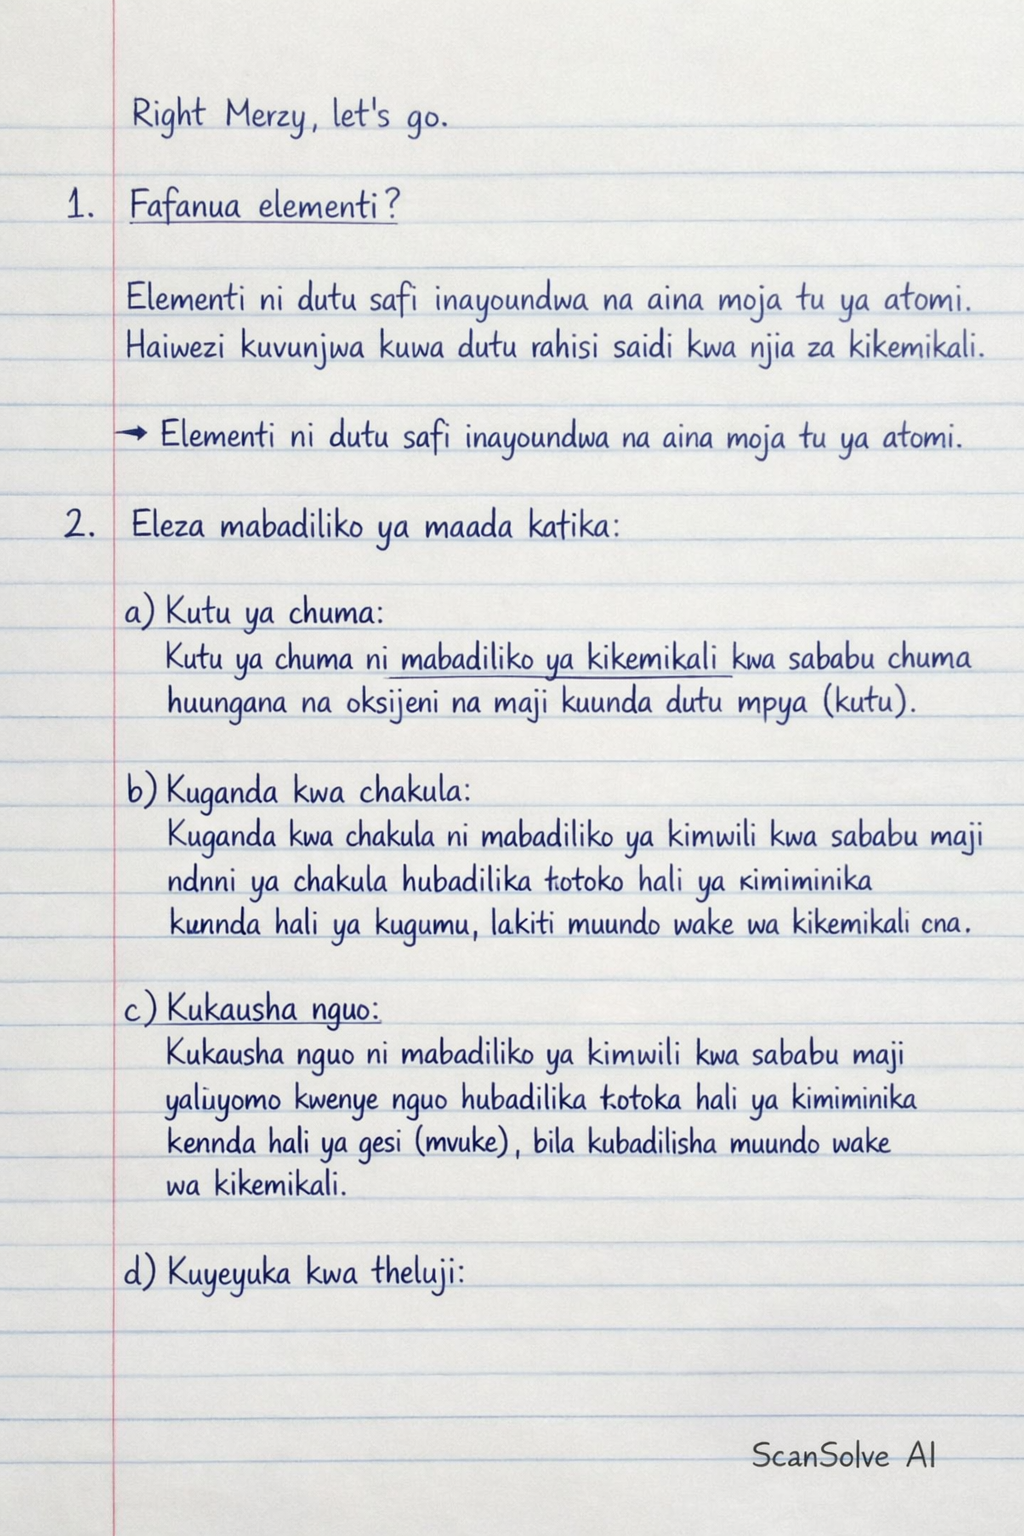 Right Merzy, let's go.
1. Fafanua elementi?
Elementi ni dutu safi inayoundwa na aina moja tu ya atomi.
Haiwezi kuvunjwa kuwa dutu rahisi saidi kwa njia za kikemikali.
→ Elementi ni dutu safi inayoundwa na aina moja tu ya atomi.
2. Eleza mabadiliko ya maada katika:
a) Kutu ya chuma:
Kutu ya chuma ni mabadiliko ya kikemikali kwa sababu chuma
huungana na oksijeni na maji kuunda dutu mpya (kutu).
b) Kuganda kwa chakula:
Kuganda kwa chakula ni mabadiliko ya kimwili kwa sababu maji
ndnni ya chakula hubadilika totoko hali ya kimiminika
kunnda hali ya kugumu, lakiti muundo wake wa kikemikali cna.
c) Kukausha nguo:
Kukausha nguo ni mabadiliko ya kimwili kwa sababu maji
yaliuyomo kwenye nguo hubadilika totoka hali ya kimiminika
kennda hali ya gesi (mvuke), bila kubadilisha muundo wake
wa kikemikali.
d) Kuyeyuka kwa theluji:
ScanSolve AI